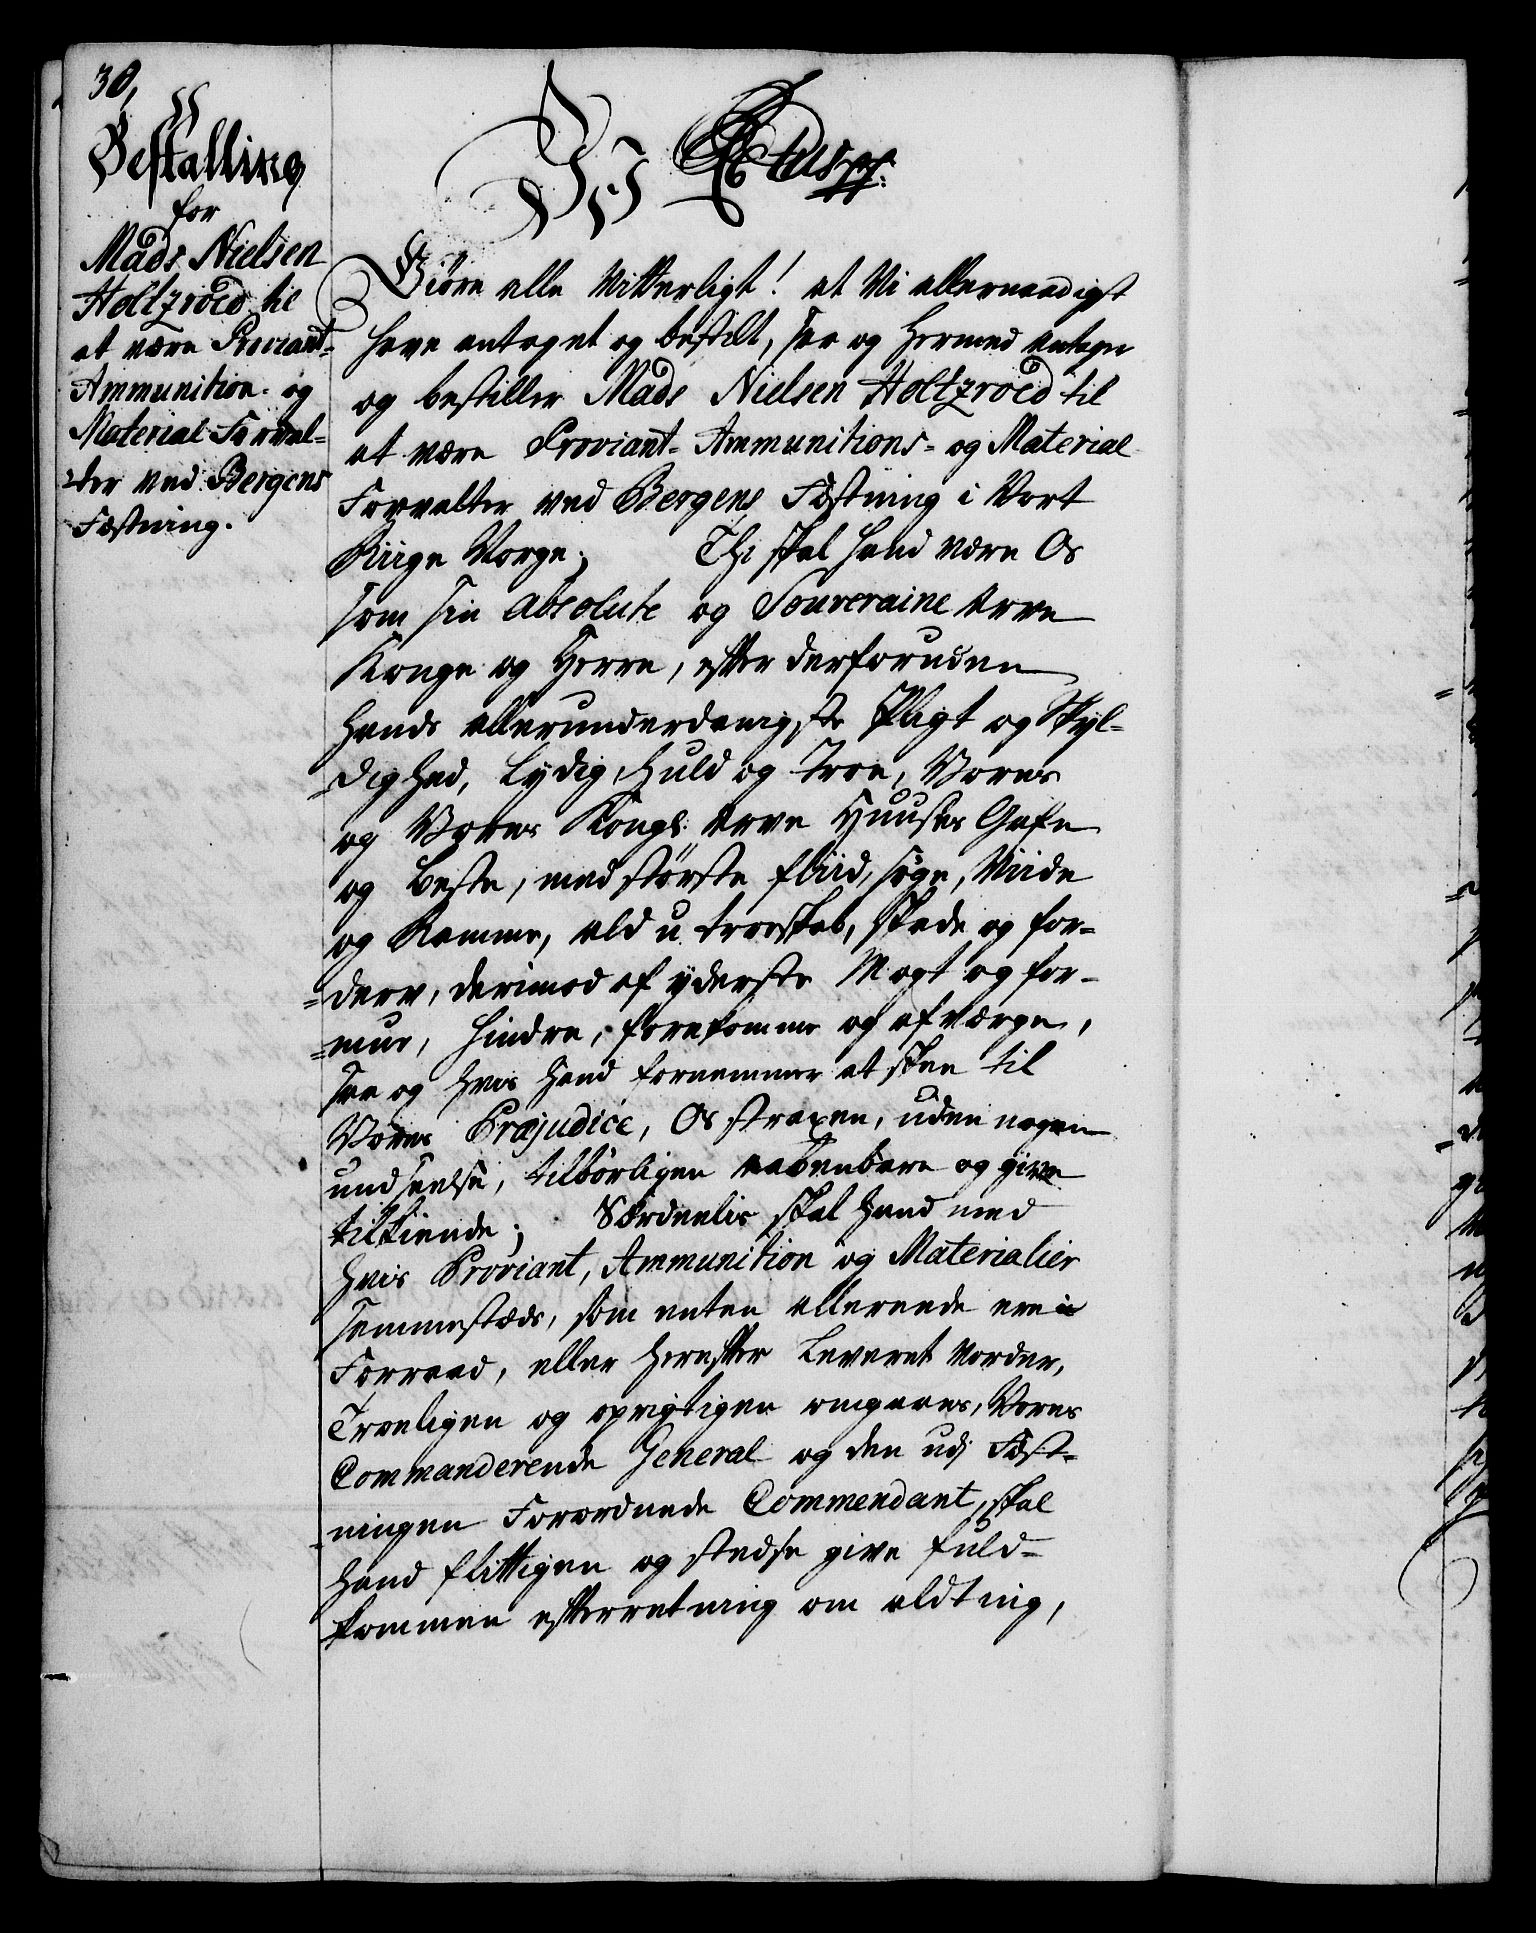 30,
Bestalling
for
Mads Nielsen
Holtzroed til
at være Proviant-
Ammunition- og
Material Forval-
ter ved Bergens
Fæstning.
Wi
Giøre alle Vitterligt! at Vi allernaadigst
have antaget og bestilt, saa og hermed antager
og bestiller Mads Nielsen Holtzroed til
at være Proviant- Ammunitions- og Material
Forvalter ved Bergens Fæstning i Vort
Riige Norge; Thi skal hand være Os
som sin absolute og Souveraine Arve
Konge og Herre, efter derforuden
hands allerunderdanigste Pligt og Skyl-
dighed, Lydig, huld og troe, Vores
og Vores Kongl: Arve Huuses Gafn
og beste, med største fliid, søge, Viide
og Ramme, ald u-troeskab, skade og for-
=derv, derimod af yderste Magt og for-
=mue, hindre, forekomme og afværge,
saa og hvis hand fornemmer at skee til
Vores Præjudice, Os straxen, uden nogen
undseelse, tilbørligen aabenbare og give
tilkiende; Særdeelis skal hand med
hvis Proviant, Ammunition og Materialier
sammestæds, som enten allereede ere i
Forraad, eller herefter Leveret vorder,
Troeligen og oprigtigen omgaaes, Vores
Commanderende General og den udj Fæst-
ningen Forordnede Commendant, skal
hand flittigen og stedse give fuld-
kommen efterretning om aldting,